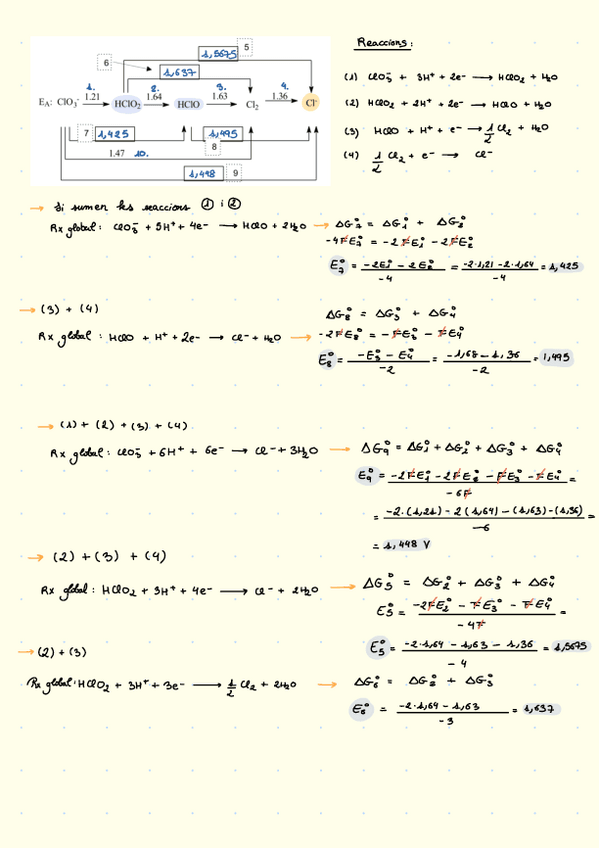 Reaccions:
5
1,5675
6
1,637
1. 2. 3. 4.
1.21 1.64 1.63 1.36
E_A: ClO₃⁻ HClO₂ HClO Cl₂ Cl⁻
7 1,425 1,495
8
1.47 10.
1,448 9
(1) ClO₃⁻ + 3H⁺ + 2e⁻ → HClO₂ + H₂O
(2) HClO₂ + 2H⁺ + 2e⁻ → HClO + H₂O
(3) HClO + H⁺ + e⁻ → 1/2 Cl₂ + H₂O
(4) 1/2 Cl₂ + e⁻ → Cl⁻
→ Si sumem les reaccions ① i ②
Rx global: ClO₃⁻ + 5H⁺ + 4e⁻ → HClO + 2H₂O → ΔG₇° = ΔG₁° + ΔG₂°
-4FE₇° = -2FE₁° - 2FE₂°
E₇° = (-2E₁° - 2E₂°)/-4 = (-2·1,21 - 2·1,64)/-4 = 1,425
→ (3) + (4)
Rx global: HClO + H⁺ + 2e⁻ → Cl⁻ + H₂O → ΔG₈° = ΔG₃° + ΔG₄°
-2FE₈° = -FE₃° - FE₄°
E₈° = (-E₃° - E₄°)/-2 = (-1,68 - 1,36)/-2 = 1,495
→ (1) + (2) + (3) + (4)
Rx global: ClO₃⁻ + 6H⁺ + 6e⁻ → Cl⁻ + 3H₂O → ΔG₉° = ΔG₁° + ΔG₂° + ΔG₃° + ΔG₄°
E₉° = (-2FE₁° - 2FE₂° - FE₃° - FE₄°)/-6F =
= (-2·(1,21) - 2(1,64) - (1,63) - (1,36))/-6 =
= 1,448 V
→ (2) + (3) + (4)
Rx global: HClO₂ + 3H⁺ + 4e⁻ → Cl⁻ + 2H₂O → ΔG₅° = ΔG₂° + ΔG₃° + ΔG₄°
E₅° = (-2FE₂° - FE₃° - FE₄°)/-4F =
E₅° = (-2·1,64 - 1,63 - 1,36)/-4 = 1,5675
→ (2) + (3)
Rx global: HClO₂ + 3H⁺ + 3e⁻ → 1/2 Cl₂ + 2H₂O → ΔG₆° = ΔG₂° + ΔG₃°
E₆° = (-2·1,64 - 1,63)/-3 = 1,637